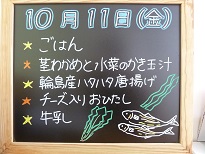 10月11日(金)
★ごはん
★茎わかめと水菜のかき玉汁
★輪島産ハタハタ唐揚げ
★チーズ入りおひたし
★牛乳